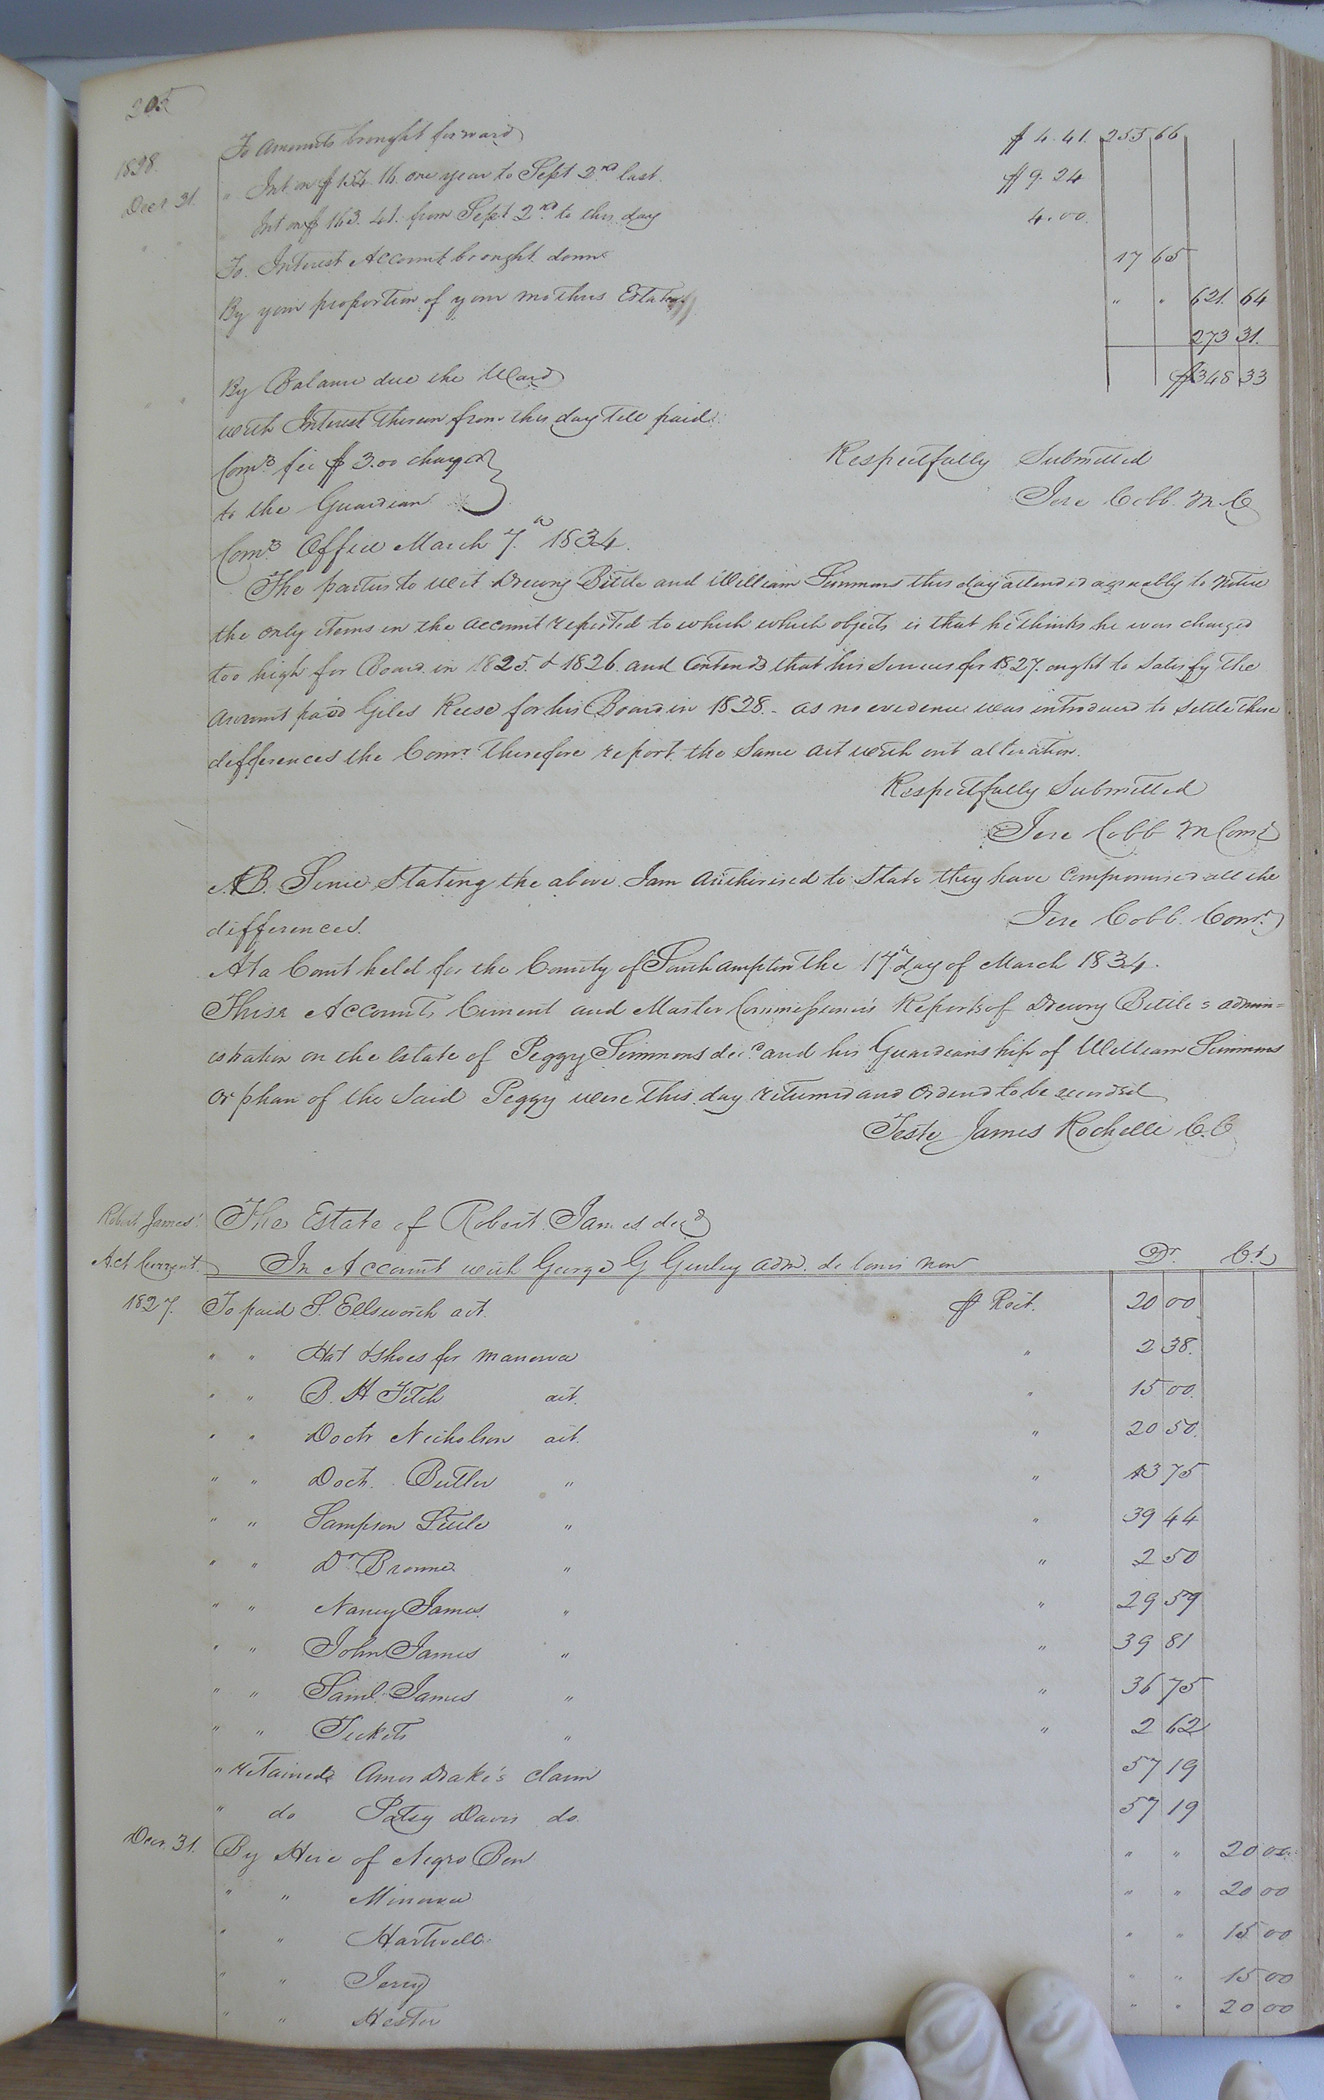 205
To amounts brought forward $4.41. 255 66
1828.
Decr 31. " Int on $154.16. one year to Sept 2nd last. $9.24
Int on $163.41. from Sept 2nd to this day 4.00
To. Interest Account brought down 17 65
By your proportion of your mothers Estate " " 621. 64
273 31.
By Balance due the Ward $348 33
with Interest thereon from this day till paid.
Comrs fee $3.00 charged Respectfully Submitted
to the Guardian Jere Cobb. M. C
Comrs Office March 7th 1834.
The parties to wit Drewry Bittle and William Simmons this day attended agreeably to Notice
the only items in the account reported to which which objects is that he thinks he was charged
too high for Board in 1825. & 1826. and Contends that his Services for 1827. ought to Satisfy the
Account paid Giles Reese for his Board in 1828. - as no evidence was introduced to Settle these
differences the Comr. therefore report the Same act with out alteration.
Respectfully Submitted
Jere Cobb M Comr
NB. Since Stating the above I am Authorised to State they have Compromised all the
differences. Jere Cobb. Comr.
At a Court held for the County of Southampton the 17th day of March 1834.
These Accounts Current and Master Commissioner's Reports of Drewry Bittle's admin=
istration on the Estate of Peggy Simmons decd. and his Guardianship of William Simmons
orphan of the Said Peggy were this day returned and Ordered to be recorded
Teste James Rochelle C. C
Robert James' The Estate of Robert James decd
Act Current. In Account with George G Gurley adm. de bonis non Dr. Cr.
1827. To paid S. Ellsworth act. $ Rect. 20 00
" " Hat & shoes for manerva " 2 38.
" " B. H Fitch act. " 15 00.
" " Doctr Nicholson act. " 20 50.
" " Doctr. Butler " " 13 75
" " Sampson Little " " 39 44
" " Dr Browne " " 2 50
" " Nancy James. " " 29 59
" " John James " " 39 81
" " Saml. James " " 36 75
" " Tickets " " 2 62
" retained Amos Drake's Claim 57 19
" do Patsy Davis do. 57 19
Decr. 31. By Hire of Negro Ben " " 20 00
" " Minerva " " 20 00
" " Hartwell " " 15 00
" " Jerry " " 15 00
" " Hester " " 20 00